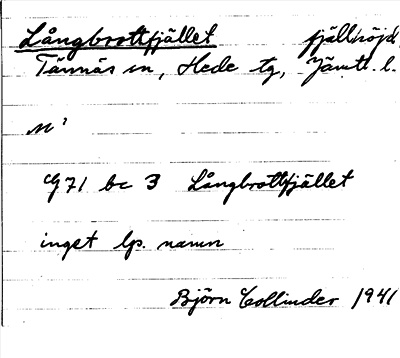 Långbrottfjället fjällhöjd
Tännäs sn, Hede tg, Jämtl. l.
M'
G 71 bc 3 Långbrottfjället
inget lp. namn
Björn Collinder 1941